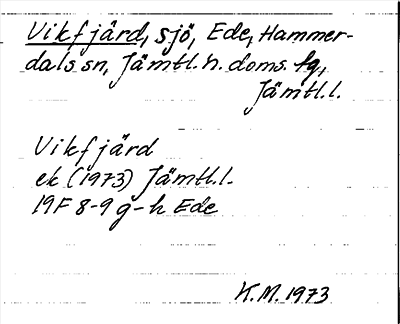 Vikfjärd, sjö, Ede, Hammer-
dals sn, Jämtl. n. doms. lg,
Jämtl.l.
Vikfjärd
ek (1973) Jämtl.l.
19F 8-9 g-h Ede
K.M. 1973